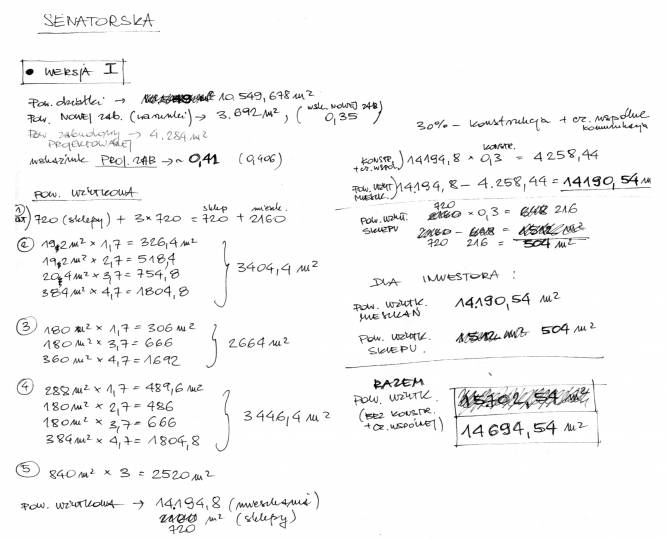 SENATORSKA
• WERSJA I
Pow. działki → 10.549,678 m²
Pow. NOWEJ zab. (warunki) → 3.692 m², (wsk. NOWEJ ZAB 0,35)
Pow zabudowy PROJEKTOWANEJ → 4.284 m²
wskaźnik PROJ. ZAB → ~ 0,41 (0,406)
POW. UŻYTKOWA
sklep mieszk.
1) 720 (sklepy) + 3 × 720 = 720 + 2160
② 192 m² × 1,7 = 326,4 m²
192 m² × 2,7 = 518,4
204 m² × 3,7 = 754,8
384 m² × 4,7 = 1804,8
3404,4 m²
③ 180 m² × 1,7 = 306 m²
180 m² × 3,7 = 666
360 m² × 4,7 = 1692
2664 m²
④ 288 m² × 1,7 = 489,6 m²
180 m² × 2,7 = 486
180 m² × 3,7 = 666
384 m² × 4,7 = 1804,8
3446,4 m²
⑤ 840 m² × 3 = 2520 m²
POW. UŻYTKOWA → 14.194,8 (mieszkania)
2160 m² (sklepy)
720
30% – konstrukcja + cz. wspólne
komunikacja
KONSTR.
KONSTR. + cz. WSPÓL.) 14194,8 × 0,3 = 4258,44
POW. UŻYT MIESZK.) 14194,8 – 4.258,44 = 14190,54 m
720
POW. UŻYTK. SKLEPU 2160 × 0,3 = 648 216
2160 – 648 = 1512 m²
720 216 = 504 m²
DLA INWESTORA :
POW. UŻYTK. MIESZKAŃ 14.190,54 m²
POW. UŻYTK. SKLEPU. 1512 m² 504 m²
RAZEM
POW. UŻYTK. 15702,54 m²
(BEZ KONSTR. + CZ. WSPÓLNEJ) 14694,54 m²